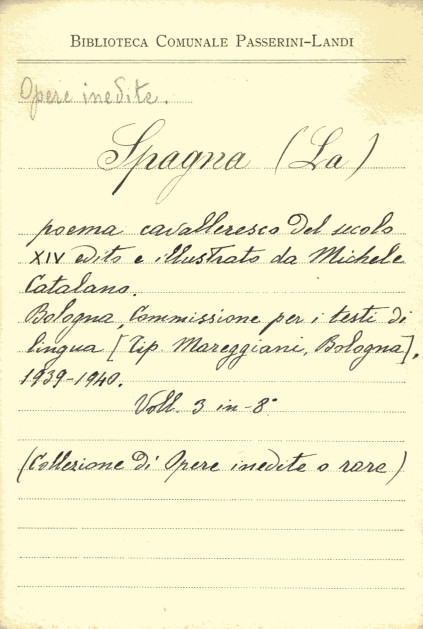 Biblioteca Comunale Passerini-Landi
Opere inedite.
Spagna (La)
poema cavalleresco del secolo
XIV edito e illustrato da Michele
Catalano.
Bologna, Commissione per i testi di
lingua [Tip. Mareggiani, Bologna],
1939-1940.
Voll. 3 in-8°
(Collezione di Opere inedite o rare)